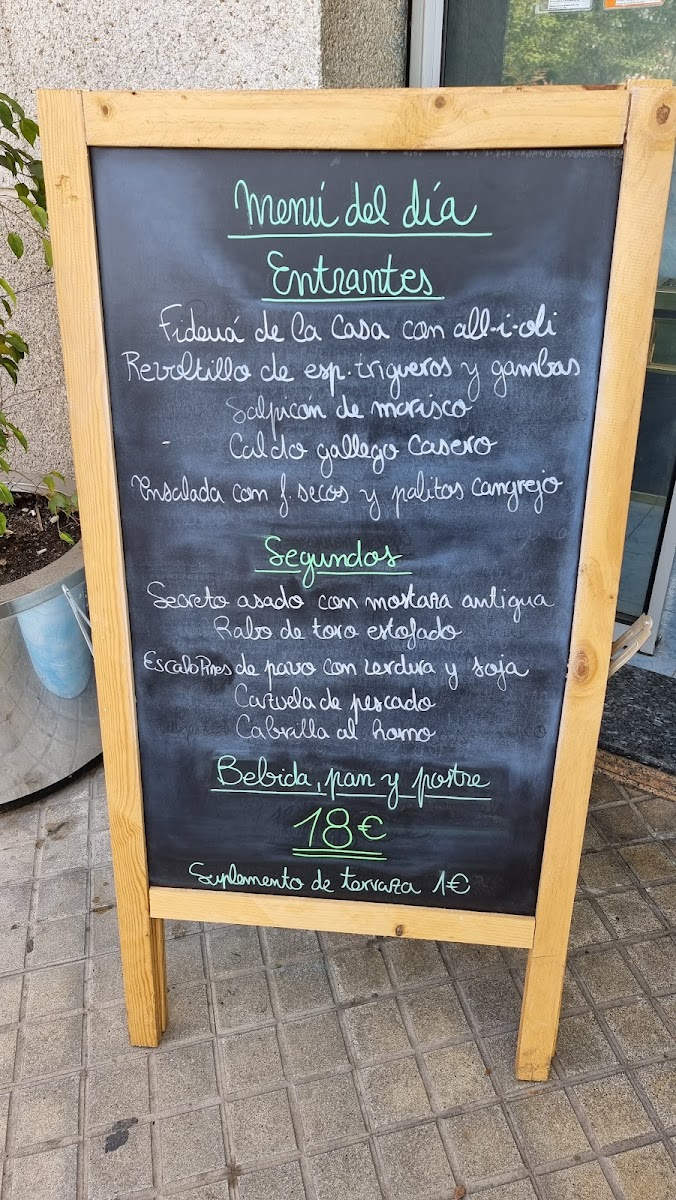 Menú del día
Entrantes
Fideuá de la Casa con all-i-oli
Revoltillo de esp. trigueros y gambas
Salpicón de marisco
- Caldo gallego Casero
Ensalada con f. secos y palitos cangrejo
Segundos
Secreto asado con mostaza antigua
Rabo de toro estofado
Escalopines de pavo con verdura y soja
Cazuela de pescado
Cabrilla al horno
Bebida, pan y postre
18€
Suplemento de terraza 1€